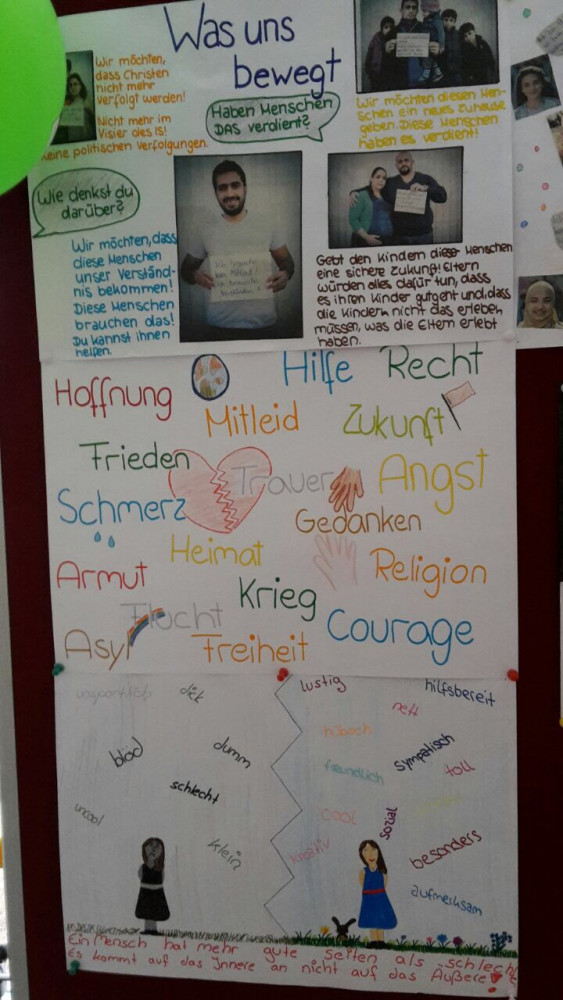 Was uns
bewegt
Wir möchten,
dass Christen
nicht mehr
verfolgt werden!
Nicht mehr im
Visier des IS!
Keine politischen Verfolgungen.
Haben Menschen
DAS verdient?
Wir möchten diesen Men-
schen ein neues Zuhause
geben. Diese Menschen
haben es verdient!
Wie denkst du
darüber?
Wir möchten, dass
diese Menschen
unser Verständ-
nis bekommen!
Diese Menschen
brauchen das!
Du kannst ihnen
helfen.
Gebt den Kindern dieser Menschen
eine sichere Zukunft! Eltern
würden alles dafür tun, dass
es ihren Kinder gutgeht und, dass
die Kindern nicht das erleben
müssen, was die Eltern erlebt
haben.
Hilfe Recht
Hoffnung
Mitleid Zukunft
Frieden
Trauer Angst
Schmerz
Gedanken
Heimat
Armut Religion
Krieg
Flucht
Courage
Asyl Freiheit
dick
blöd
dumm
schlecht
uncool
klein
lustig hilfsbereit
nett
hübsch
sympatisch
freundlich toll
cool
sozial
kreativ
besonders
aufmerksam
Ein Mensch hat mehr gute seiten als schlechte
Es kommt auf das Innere an nicht auf das Äußere!